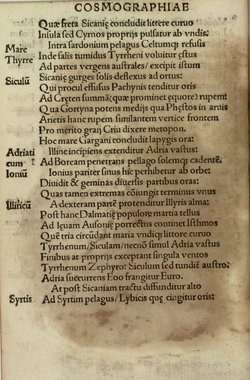 COSMOGRAPHIAE
Quæ freta Sicaniȩ concludit littere curuo
Insula sed Cyrnos proprijs pulsatur ab vndis:
Mare Intra sardonium pelagus Celtumqȝ refusis
Thyrre. Inde salis tumidus Tyrrheni voluitur ȩstus
Ad partes vergens australes/ excipit istum
Siculũ Sicaniȩ gurges solis deflexus ad ortus:
Qui procul effusus Pachynis tenditur oris
Ad Crȩten summã(quæ prominet ȩquore) rupem
Qua Gortyna potens medijs qua Phȩstos in aruis
Arietis hanc rupem similantem vertice frontem
Pro merito grani Criu dixere metopon.
Hoc mare Gargani concludit Iapygis ora:
Adriati Illinc incipiens extenditur Adria vastus:
cum Ad Boream penetrans pellago solemqȝ cadentẽ.
Ioniũ Ionius pariter sinus hic perhibitur ab orbe:
Diuidit & geminas diuersis partibus oras:
Quas tamen extremas cõiungit terminus vnus
Illiricũ A dexteram partẽ protenditur Illyris alma:
Post hanc Dalmatiȩ populorũ martia tellus
Ad lȩuam Ausoniȩ porrectus continet Isthmos
Quẽ tria circũdant maria vndiqȝ littore curuo
Tyrrhenum/Siculum/necnõ simul Adria vastus
Finibus at proprijs exceptant singula ventos
Tyrrhenum Zephyro: Siculum sed tundiẽ austro:
Adria succurrens Eoo frangitur Euro.
At post Sicaniam tractu diffunditur alto
Syrtis Ad Syrtim pelagus/ Lybicis quȩ cingitur oris: